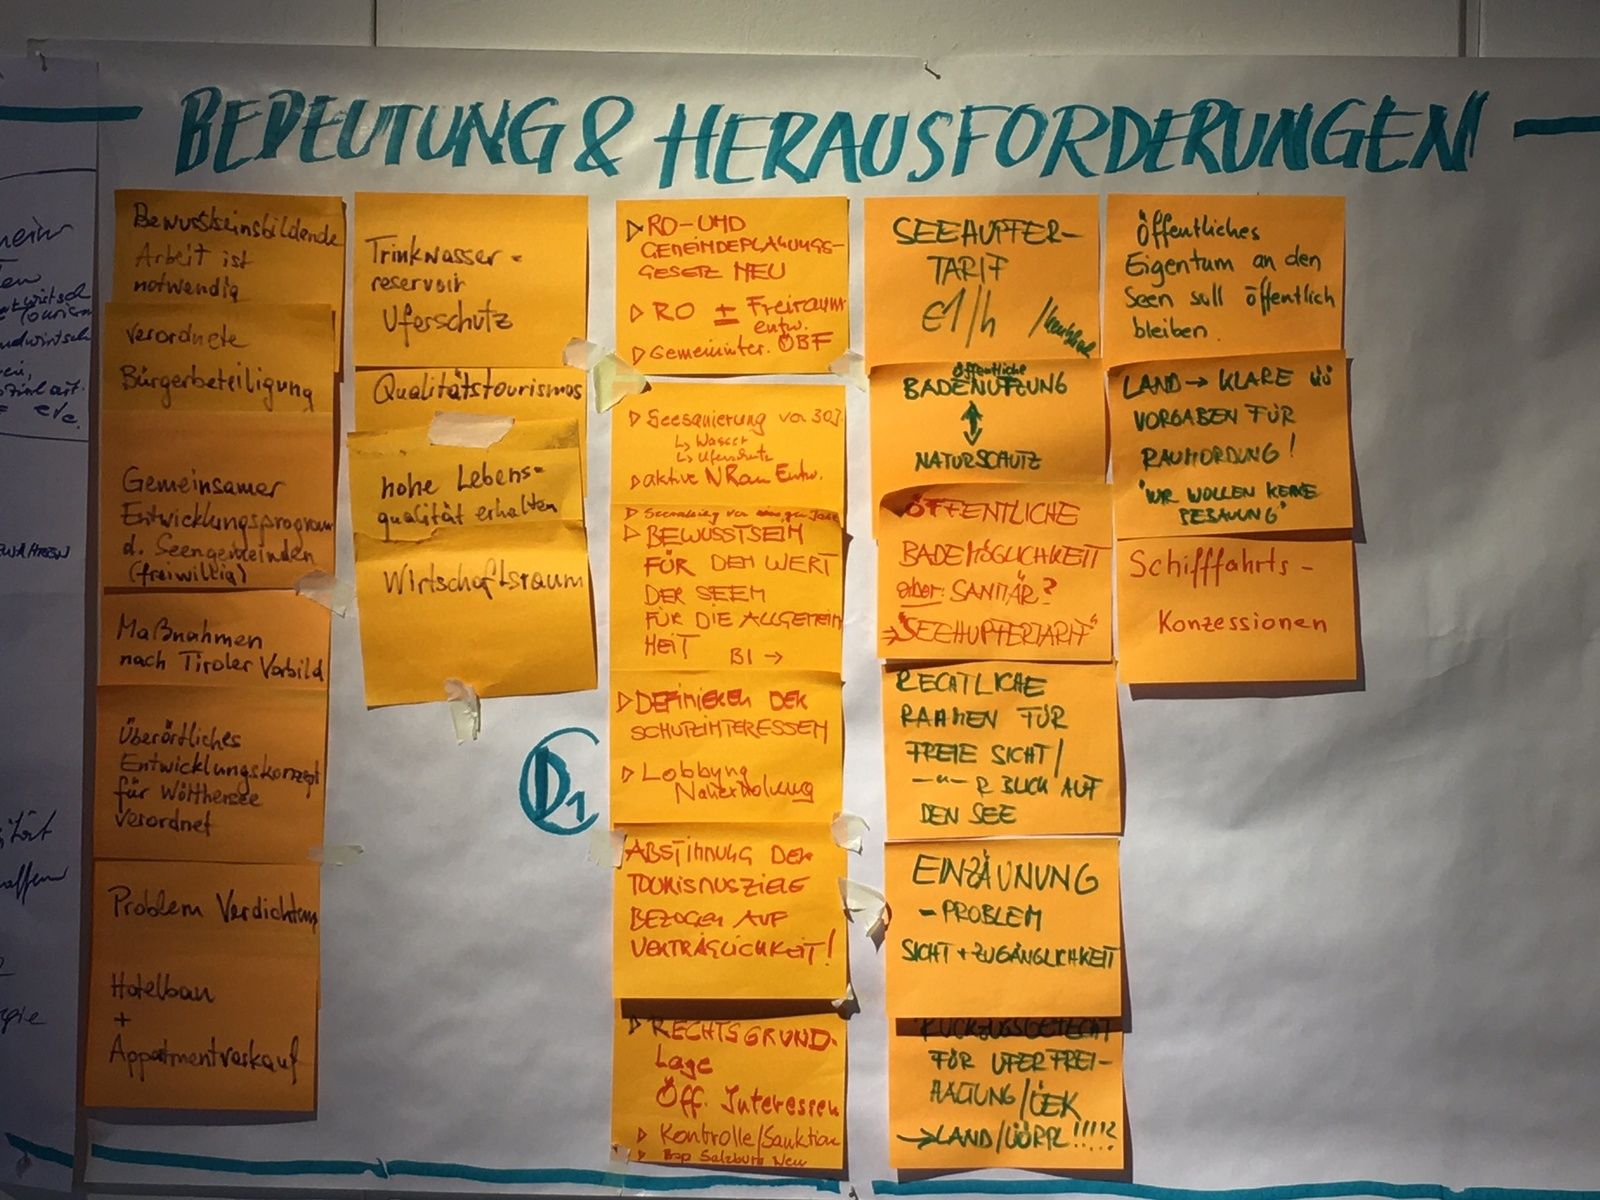 BEDEUTUNG & HERAUSFORDERUNGEN
Bewusstseinsbildende
Arbeit ist
notwendig
verordnete
Bürgerbeteiligung
Gemeinsamer
Entwicklungsprogram
d. Seengemeinden
(freiwillig)
Maßnahmen
nach Tiroler Vorbild
Überörtliches
Entwicklungskonzept
für Wörthersee
verordnet
Problem Verdichtung
Hotelbau
+
Appartmentverkauf
Trinkwasser-
reservoir
Uferschutz
Qualitätstourismus
hohe Lebens-
qualität erhalten
Wirtschaftsraum
D1
▷ RO-UND
GEMEINDEPLANUNGS-
GESETZ NEU
▷ RO ± Freiraum
entw.
▷ Gemeininter. ÖBF
▷ Seesanierung vor 30J.
↳ Wasser
↳ Uferschutz
▷ aktive NRaum Entw.
▷ BEWUSSTSEIN
FÜR DEN WERT
DER SEEN
FÜR DIE ALLGEMEIN
HEIT
BI →
▷ DEFINIEREN DER
SCHUTZINTERESSEN
▷ Lobbyng
Naherholung
ABSTIMMUNG DER
TOURISMUSZIELE
BEZOGEN AUF
VERTRÄGLICHKEIT!
▷ RECHTSGRUND-
Lage
Öff. Interessen
▷ Kontrolle/Sanktion
▷ Bsp Salzburg Neu
SEEHUPFER-
TARIF
€1/h
öffentliche
BADENUTZUNG
↕
NATURSCHUTZ
ÖFFENTLICHE
BADEMÖGLICHKEIT
aber: SANITÄR?
→ "SEEHUPFERTARIF"
RECHTLICHE
RAHMEN FÜR
FREIE SICHT/
—"— R BLICK AUF
DEN SEE
EINZÄUNUNG
- PROBLEM
SICHT + ZUGÄNGLICHKEIT
FÜR UFERFREI-
HALTUNG/ÖEK
→ LAND/ÜÖRPL!!!!!
Öffentliches
Eigentum an den
Seen soll öffentlich
bleiben.
LAND → KLARE ÜÖ
VORGABEN FÜR
RAUMORDUNG!
"WIR WOLLEN KEINE
BEBAUUNG"
Schifffahrts-
Konzessionen